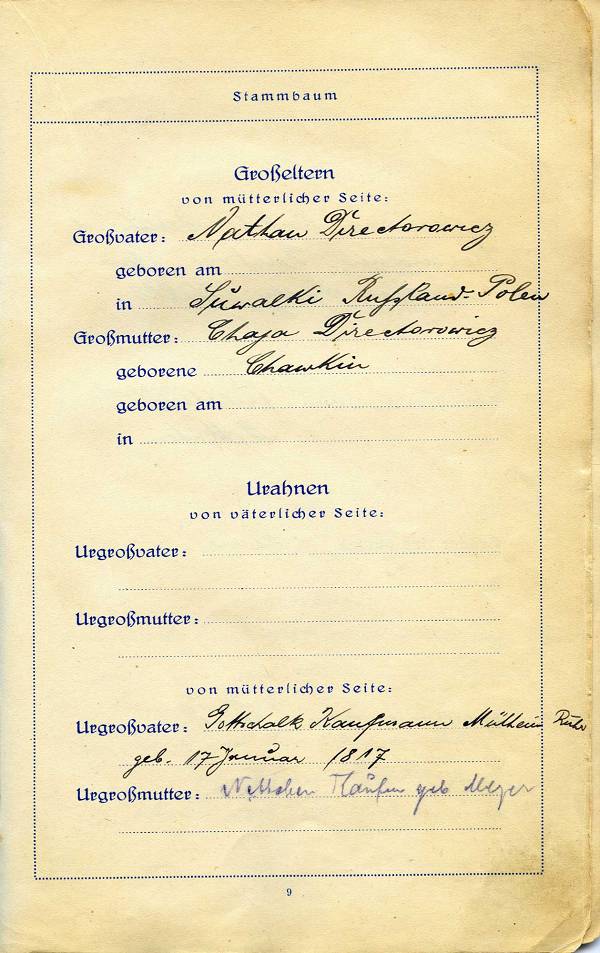 Stammbaum
Großeltern
von mütterlicher Seite:
Großvater: Nathan Directorowicz
geboren am
in Suwalki Russland-Polen
Großmutter: Chaja Directorowicz
geborene Chawkin
geboren am
in
Urahnen
von väterlicher Seite:
Urgroßvater:
Urgroßmutter:
von mütterlicher Seite:
Urgroßvater: Gottschalk Kaufmann Mülheim Ruhr
geb. 17 Januar 1817
Urgroßmutter: geb Meyer
9